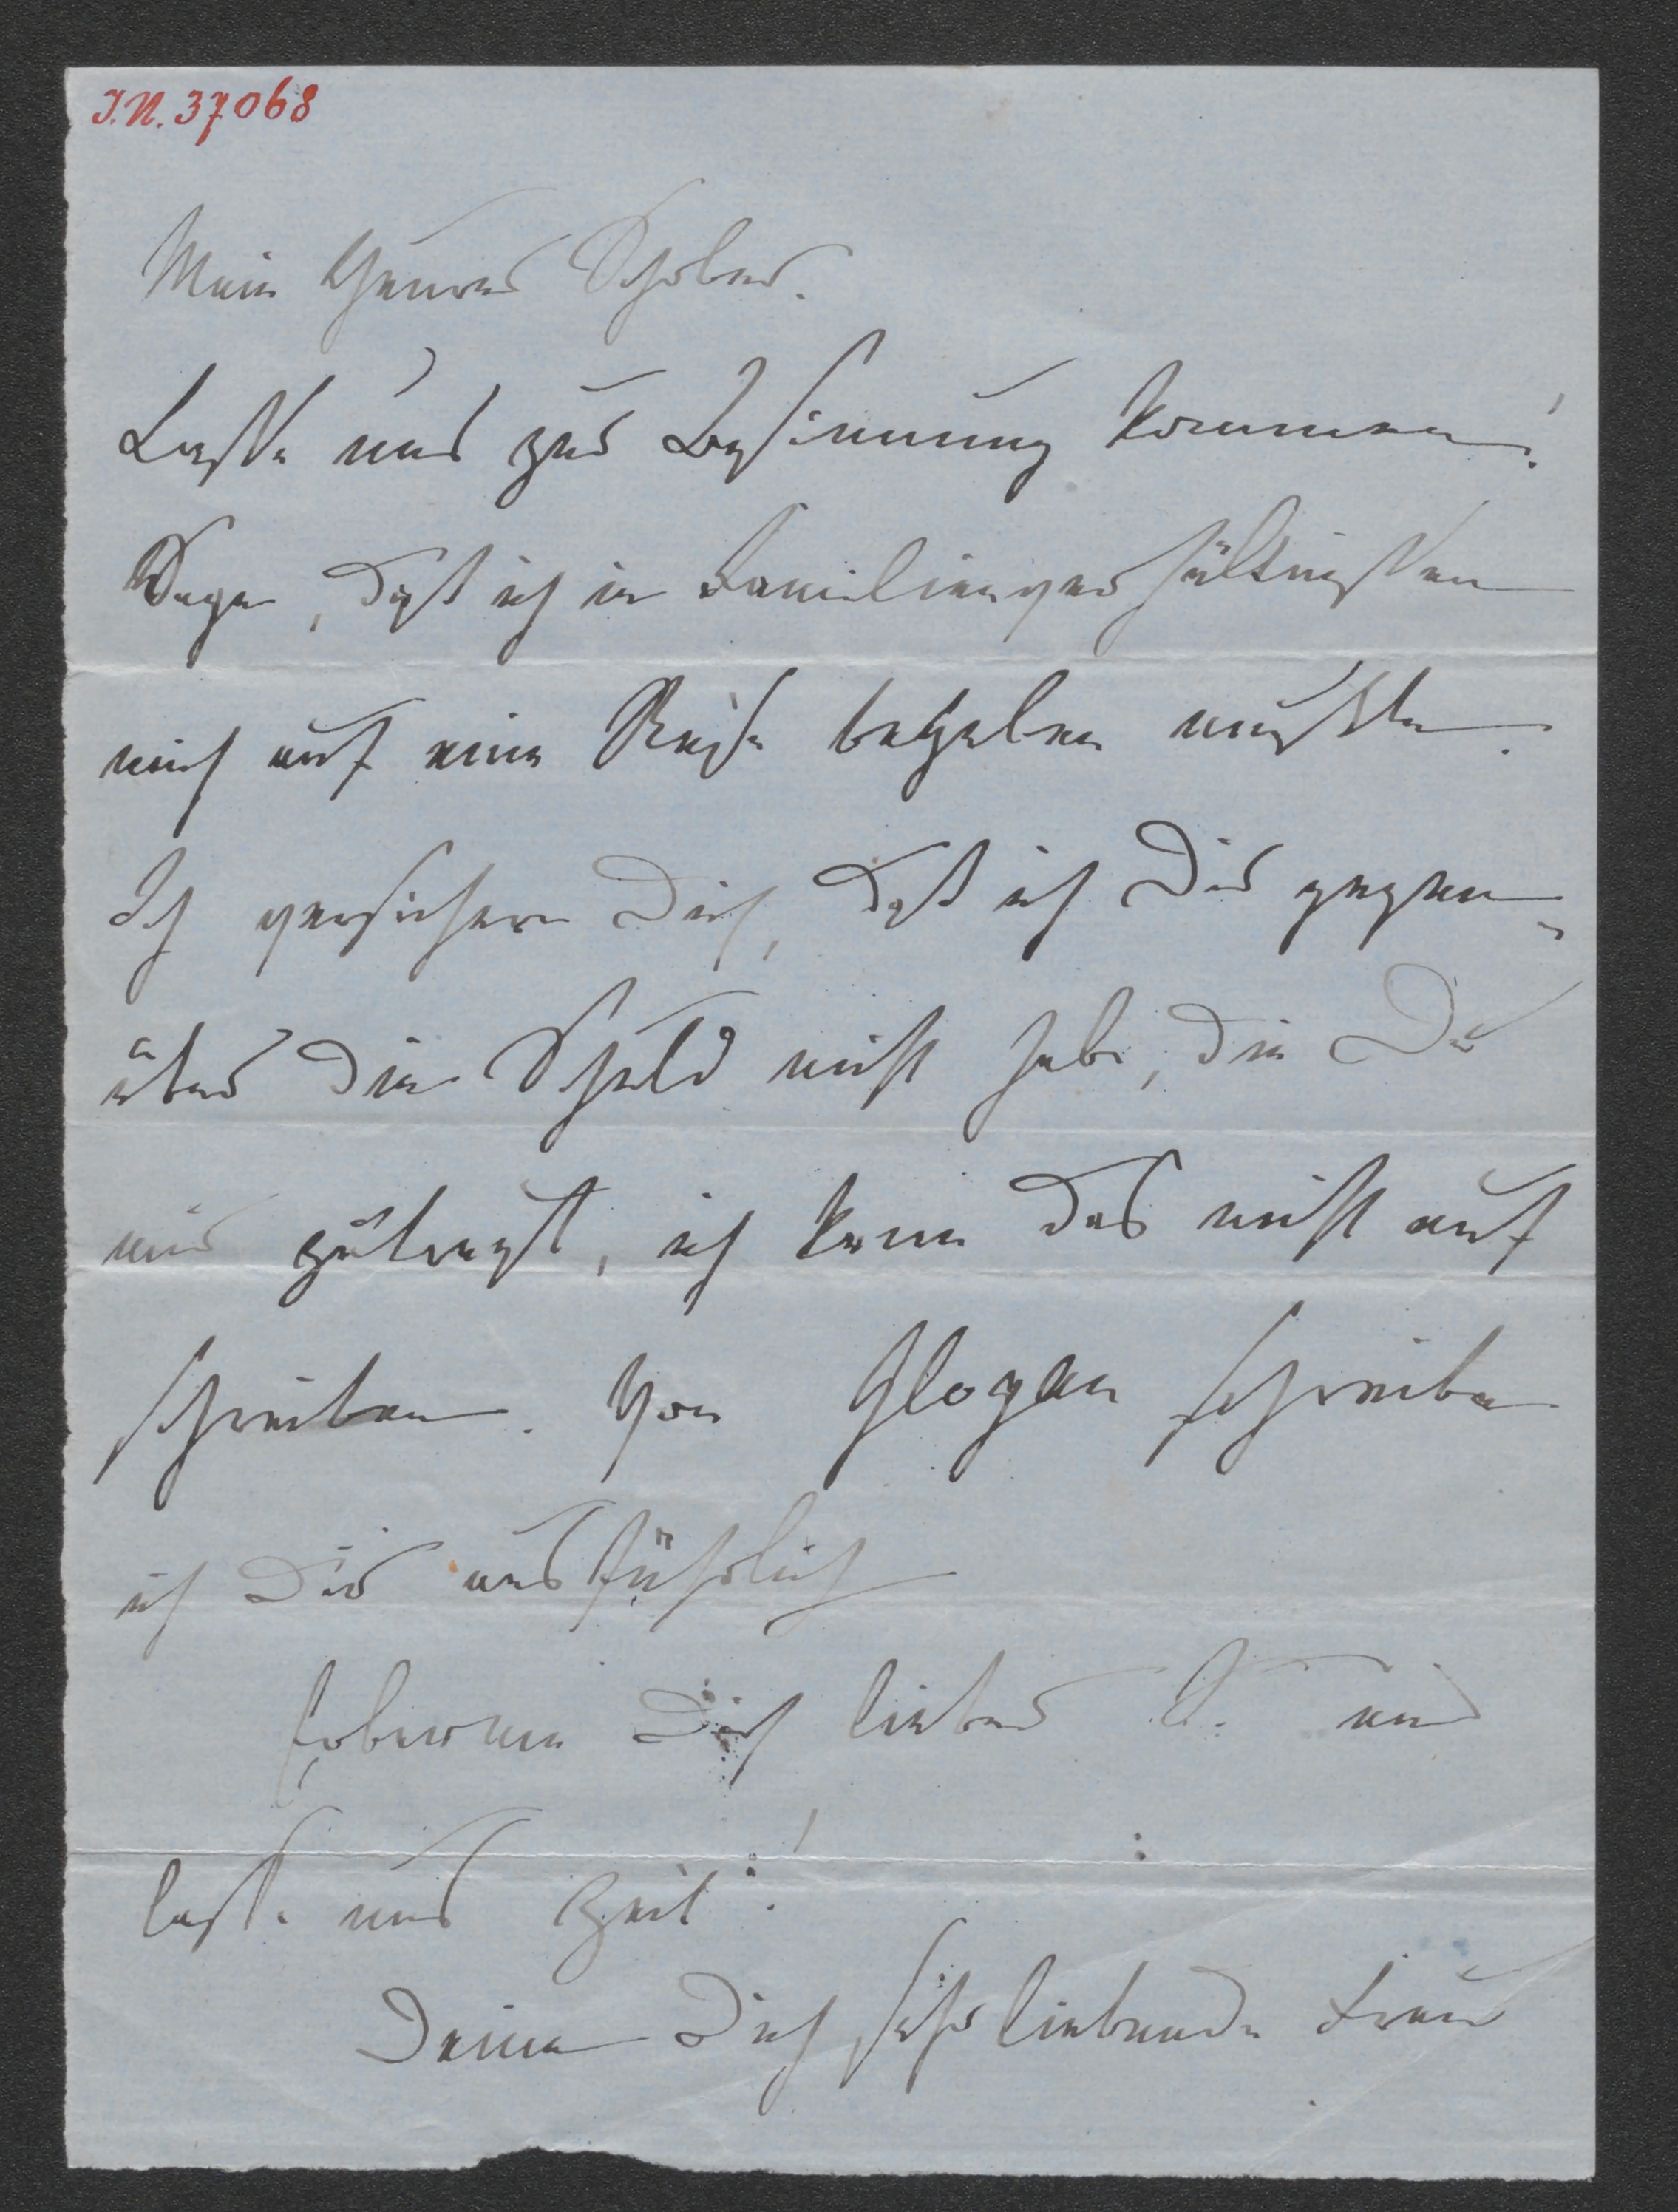 I.N. 37.068
Mein theurer Schober.
Lasse uns zur Besinnung kommen!
Sage, daß ich in Familienverhältnissen
mich auf eine Reise begeben mußte.
Ich versichere Dich, daß ich Dir gegen-
über die Schuld nicht habe, die Du
mir zutragst, ich kann das nicht auf
schreiben. Von Glogau schreibe
ich Dir ausführlich
Erbarme Dich lieber S. und
lasse uns Zeit!
Deine Dich sehr liebende Frau